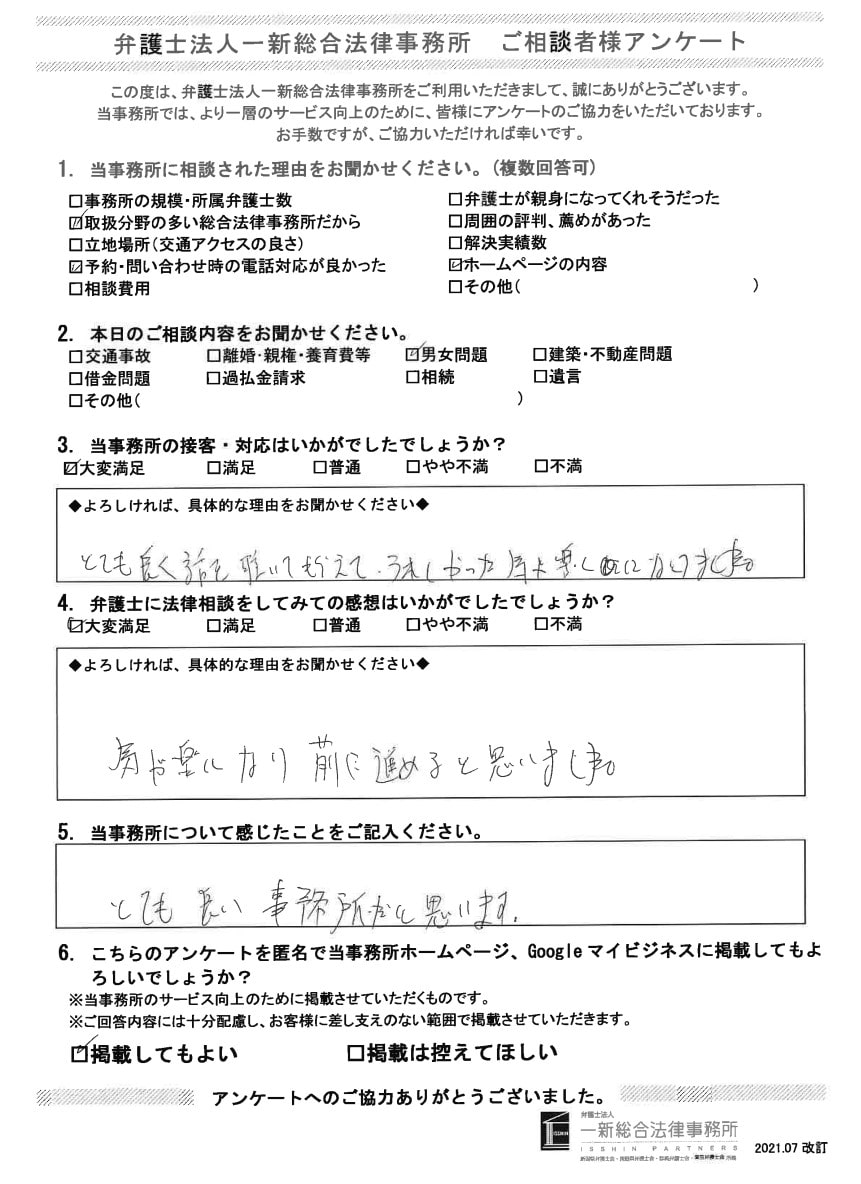 弁護士法人一新総合法律事務所　ご相談者様アンケート
この度は、弁護士法人一新総合法律事務所をご利用いただきまして、誠にありがとうございます。
当事務所では、より一層のサービス向上のために、皆様にアンケートのご協力をいただいております。
お手数ですが、ご協力いただければ幸いです。
1. 当事務所に相談された理由をお聞かせください。（複数回答可）
□事務所の規模・所属弁護士数　□弁護士が親身になってくれそうだった
☑取扱分野の多い総合法律事務所だから　□周囲の評判、薦めがあった
□立地場所（交通アクセスの良さ）　□解決実績数
☑予約・問い合わせ時の電話対応が良かった　☑ホームページの内容
□相談費用　□その他（　）
2. 本日のご相談内容をお聞かせください。
□交通事故　□離婚・親権・養育費等　☑男女問題　□建築・不動産問題
□借金問題　□過払金請求　□相続　□遺言
□その他（　）
3. 当事務所の接客・対応はいかがでしたでしょうか？
☑大変満足　□満足　□普通　□やや不満　□不満
◆よろしければ、具体的な理由をお聞かせください◆
とても良く話を聴いてもらえて、うれしかった 肩が楽になりました。
4. 弁護士に法律相談をしてみての感想はいかがでしたでしょうか？
☑大変満足　□満足　□普通　□やや不満　□不満
◆よろしければ、具体的な理由をお聞かせください◆
肩が楽になり 前に進めると思いました。
5. 当事務所について感じたことをご記入ください。
とても良い事務所だと思います。
6. こちらのアンケートを匿名で当事務所ホームページ、Googleマイビジネスに掲載してもよ
ろしいでしょうか？
※当事務所のサービス向上のために掲載させていただくものです。
※ご回答内容には十分配慮し、お客様に差し支えのない範囲で掲載させていただきます。
☑掲載してもよい　□掲載は控えてほしい
アンケートへのご協力ありがとうございました。
弁護士法人
ISSHIN 一新総合法律事務所
ISSHIN PARTNERS
2021.07 改訂